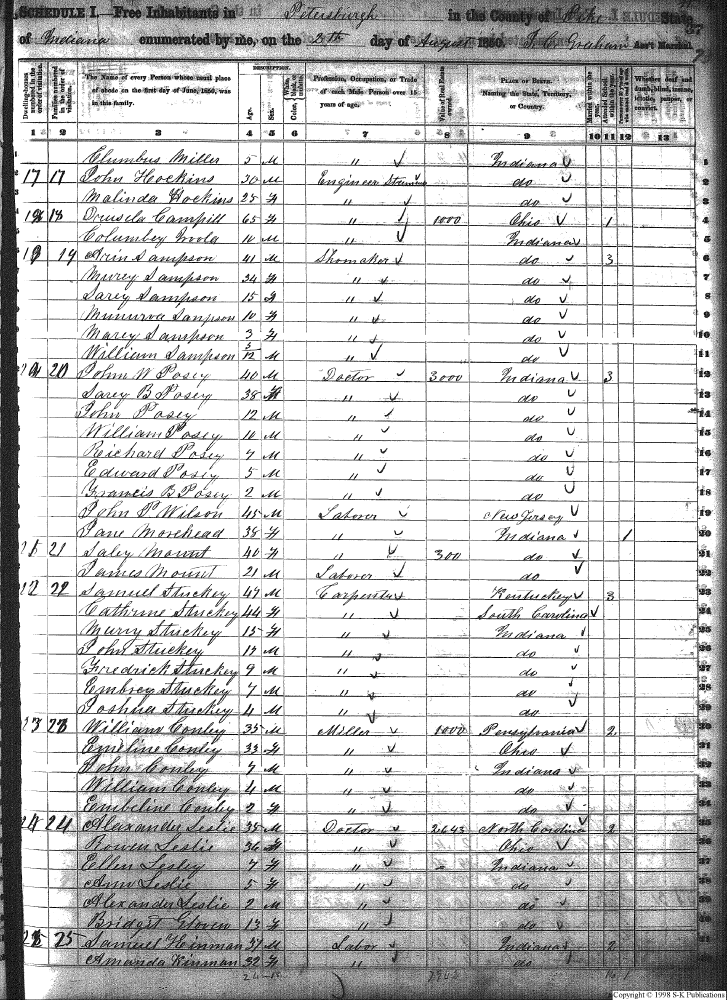 SCHEDULE I.—Free Inhabitants in Petersburgh in the County of Pike State
of Indiana enumerated by me, on the 20th day of August 1850. J. C. Graham Ass't Marshal.
Dwelling-houses numbered in the order of visitation.
Families numbered in the order of visitation.
The Name of every Person whose usual place of abode on the first day of June, 1850, was in this family.
DESCRIPTION.
Age.
Sex.
Color, White, black, or mulatto.
Profession, Occupation, or Trade of each Male Person over 15 years of age.
Value of Real Estate owned.
PLACE OF BIRTH. Naming the State, Territory, or Country.
Married within the year.
Whether deaf and dumb, blind, insane, idiotic, pauper, or convict.
1 2 3 4 5 6 7 8 9 10 11 12 13
Clumbus Miller 5 M " Indiana
17 17 John Hockins 30 M Engineer do
Malinda Hockins 25 F " do
18 18 Campill 65 F " 1000 Ohio 1
10 M " Indiana
19 19 Sampson 41 M Shomaker do 3
Murey Sampson 34 F " do
Sarey Sampson 15 F " do
Sampson 10 F " do
Marey Sampson 3 F " do
William Sampson 5/12 M " do
20 20 John W Posey 40 M Doctor 3000 Indiana 3
Sarey B Posey 38 F " do
John Posey 12 M " do
William Posey 10 M " do
Richard Posey 7 M " do
Edward Posey 5 M " do
Francis B Posey 2 M " do
John P Wilson 45 M Laborer New Jersey
Jane Morehead 38 F " Indiana 1
21 21 Saley Mount 40 F " 300 do
James Mount 21 M Laborer do
22 22 Samuel Stuckey 47 M Carpenter Kentuckey 3
Cathrine Stuckey 44 F " South Carolina
Murry Stuckey 15 F " Indiana
John Stuckey M " do
Fredrick Stuckey 9 M " do
Embrey Stuckey 7 M " do
Joshua Stuckey 4 M " do
23 23 William Conley 35 M Miller 1000 Pensylvania 2
Emeline Conley 33 F " Ohio
John Conley 7 M " Indiana
William Conley 4 M " do
Embeline Conley 2 F " do
24 24 Alexander Leslie 38 M Doctor 2643 North Cordina 2
Rowen Leslie 36 F " Ohio
Ellen Lesley 7 F " Indiana
Ann Leslie 5 F " do
Alexander Leslie 2 M " do
Bridget Gloven 13 F " do
25 25 Samuel Hinman 37 M Labor Indiana 2
Amanda Kinman 32 F " do
[Copyright © 1998 S-K Publications]